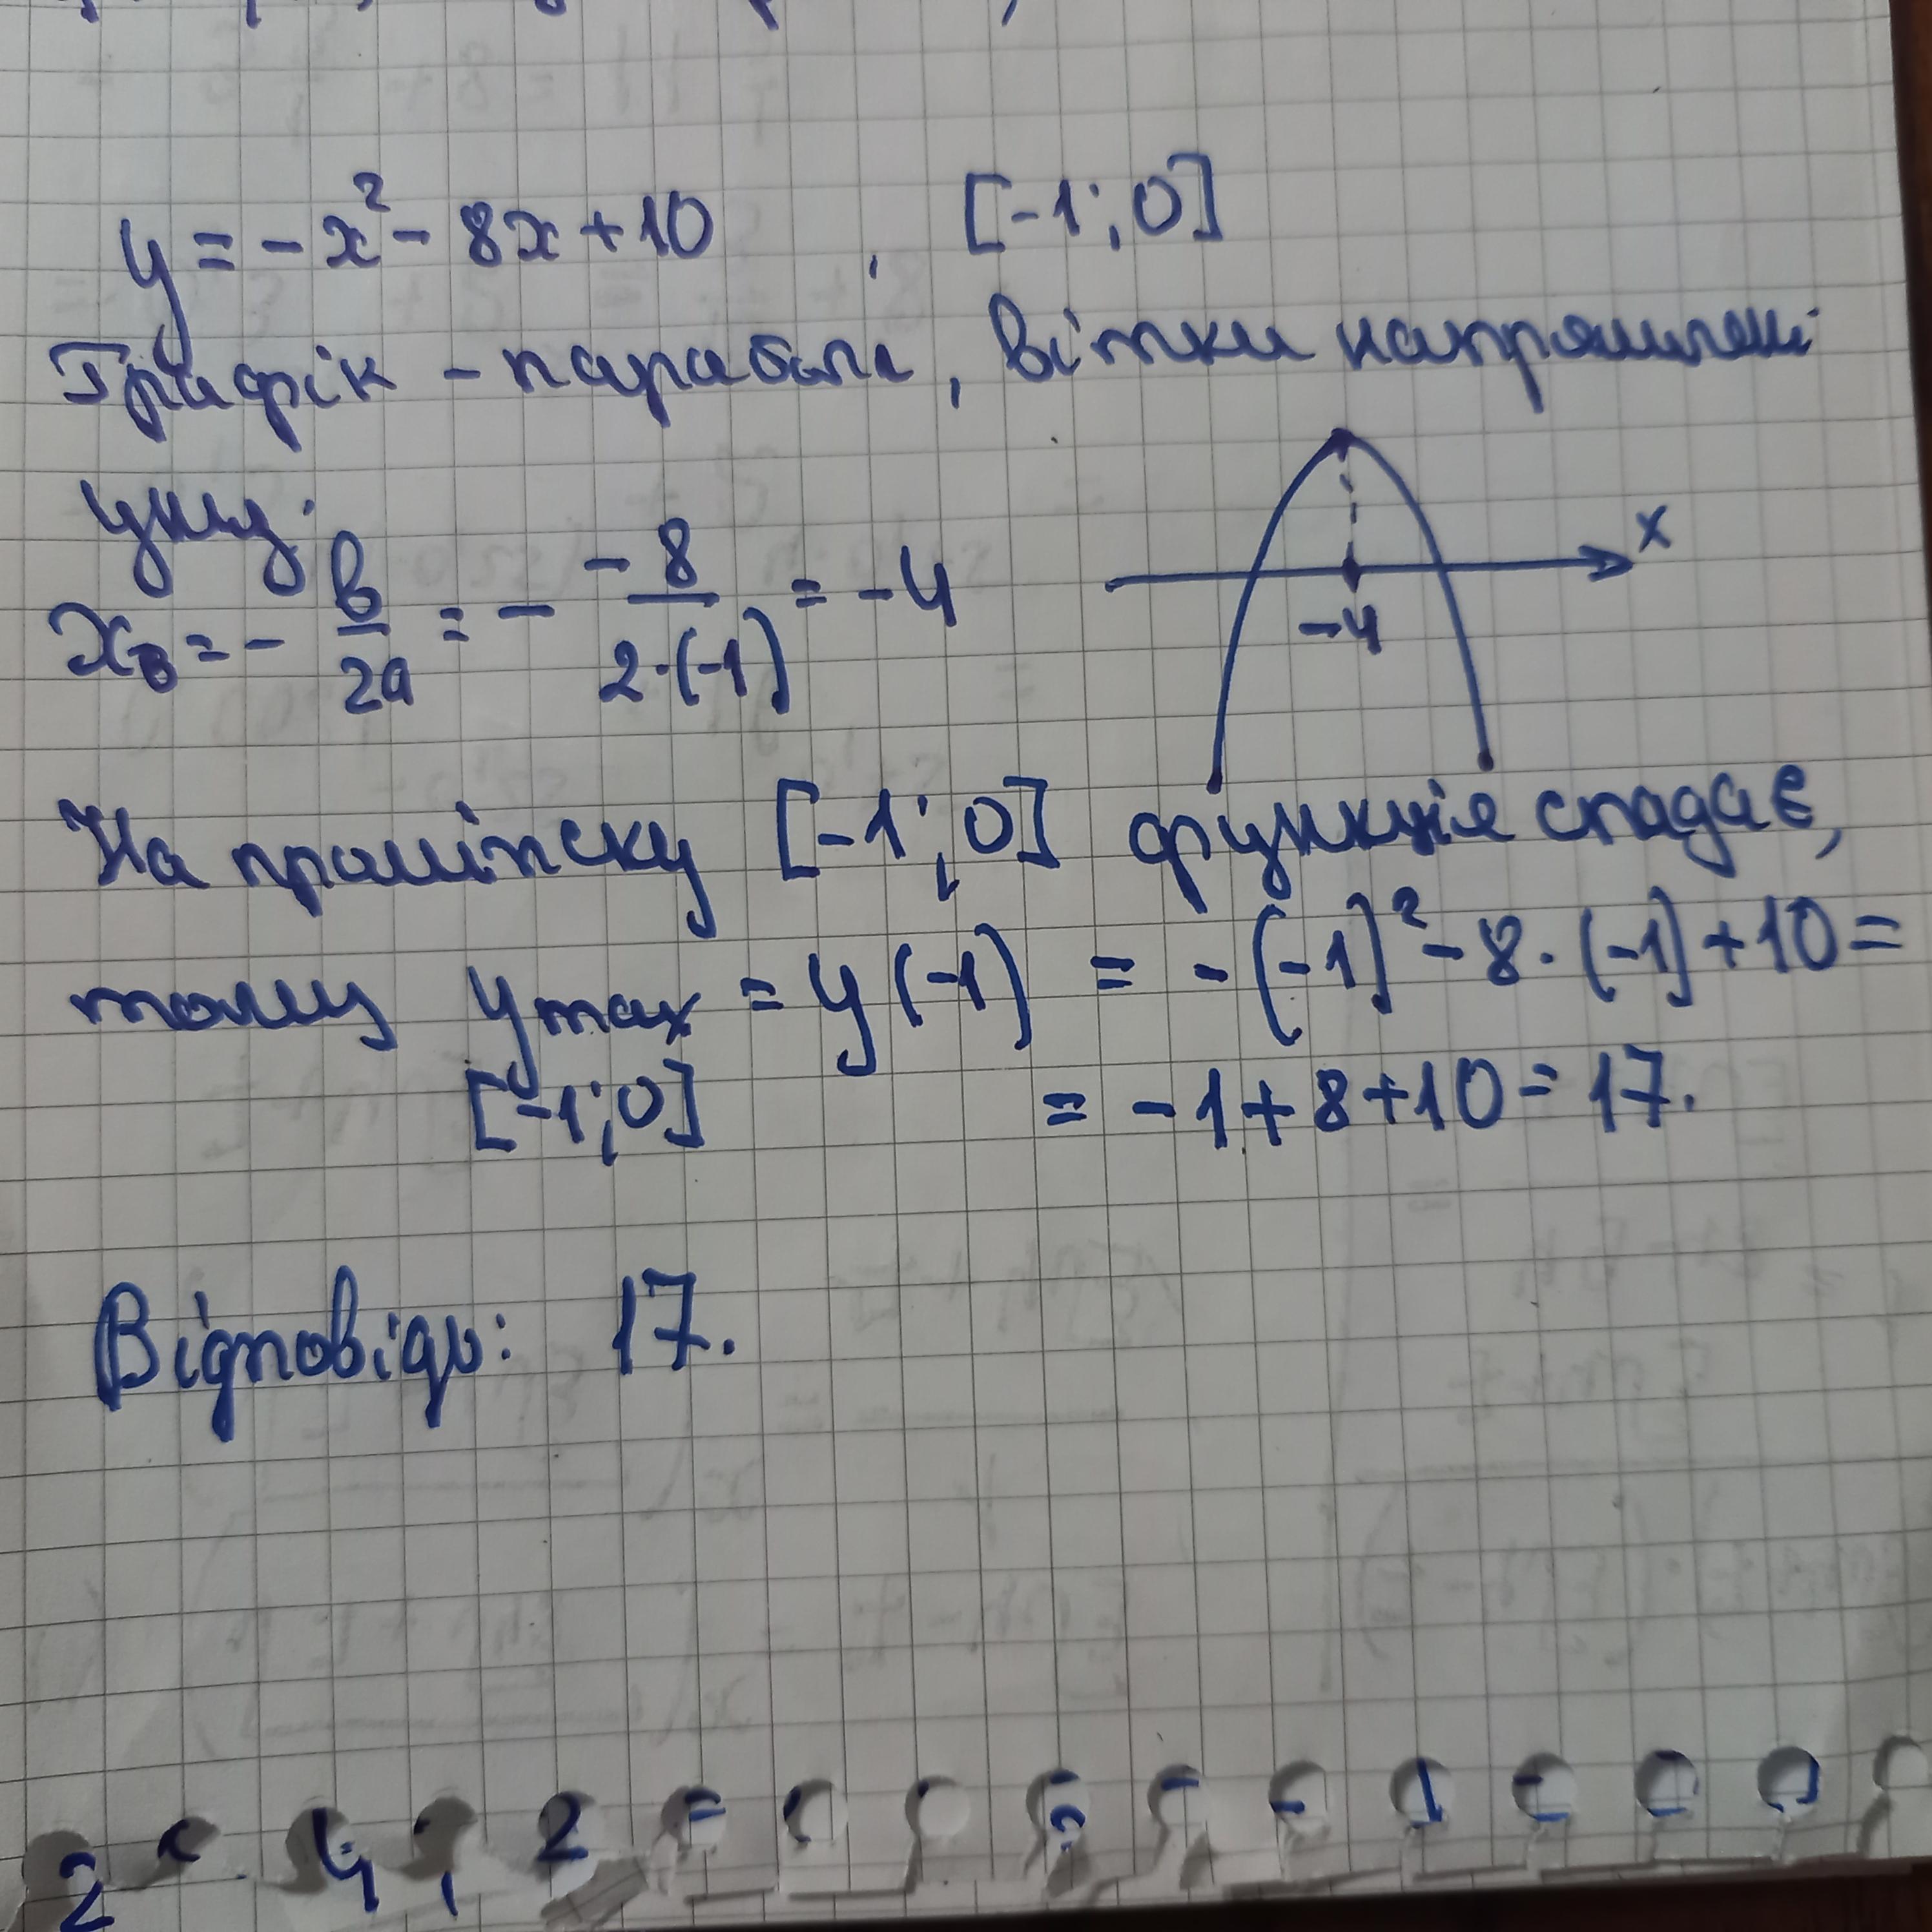 y = -x² - 8x + 10 , [-1; 0]
Графік - парабола, вітки напрямлені
униз.
xв = - в/2a = - -8/2·(-1) = -4
x
-4
На проміжку [-1; 0] функція спадає,
тому y max = y(-1) = -(-1)² - 8·(-1) + 10 =
[-1; 0] = -1 + 8 + 10 = 17.
Відповідь: 17.